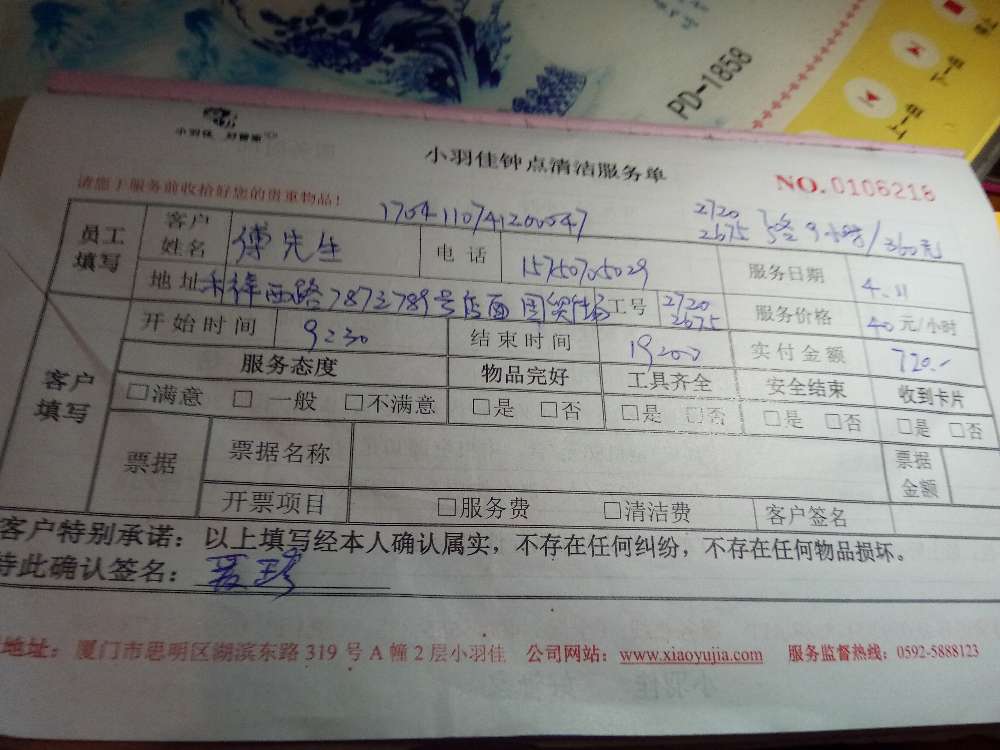 PD-1858
下一曲
上一曲
小羽佳 好管家
小羽佳钟点清洁服务单
NO.0106218
请您于服务前收拾好您的贵重物品!
1704110741200047
2720
2675 9小时/360元
员工填写 客户姓名 傅先生 电话 15750705029 服务日期 4.11
地址 禾祥西路787至789号店面国贸 工号 2720 2675 服务价格 40元/小时
客户填写 开始时间 9:30 结束时间 19:00 实付金额 720.-
服务态度 物品完好 工具齐全 安全结束 收到卡片
□满意 □一般 □不满意 □是 □否 □是 □否 □是 □否 □是 □否
票据 票据名称 票据金额
开票项目 □服务费 □清洁费 客户签名
客户特别承诺:以上填写经本人确认属实,不存在任何纠纷,不存在任何物品损坏。
特此确认签名:
地址:厦门市思明区湖滨东路319号A幢2层小羽佳 公司网站:www.xiaoyujia.com 服务监督热线:0592-5888123